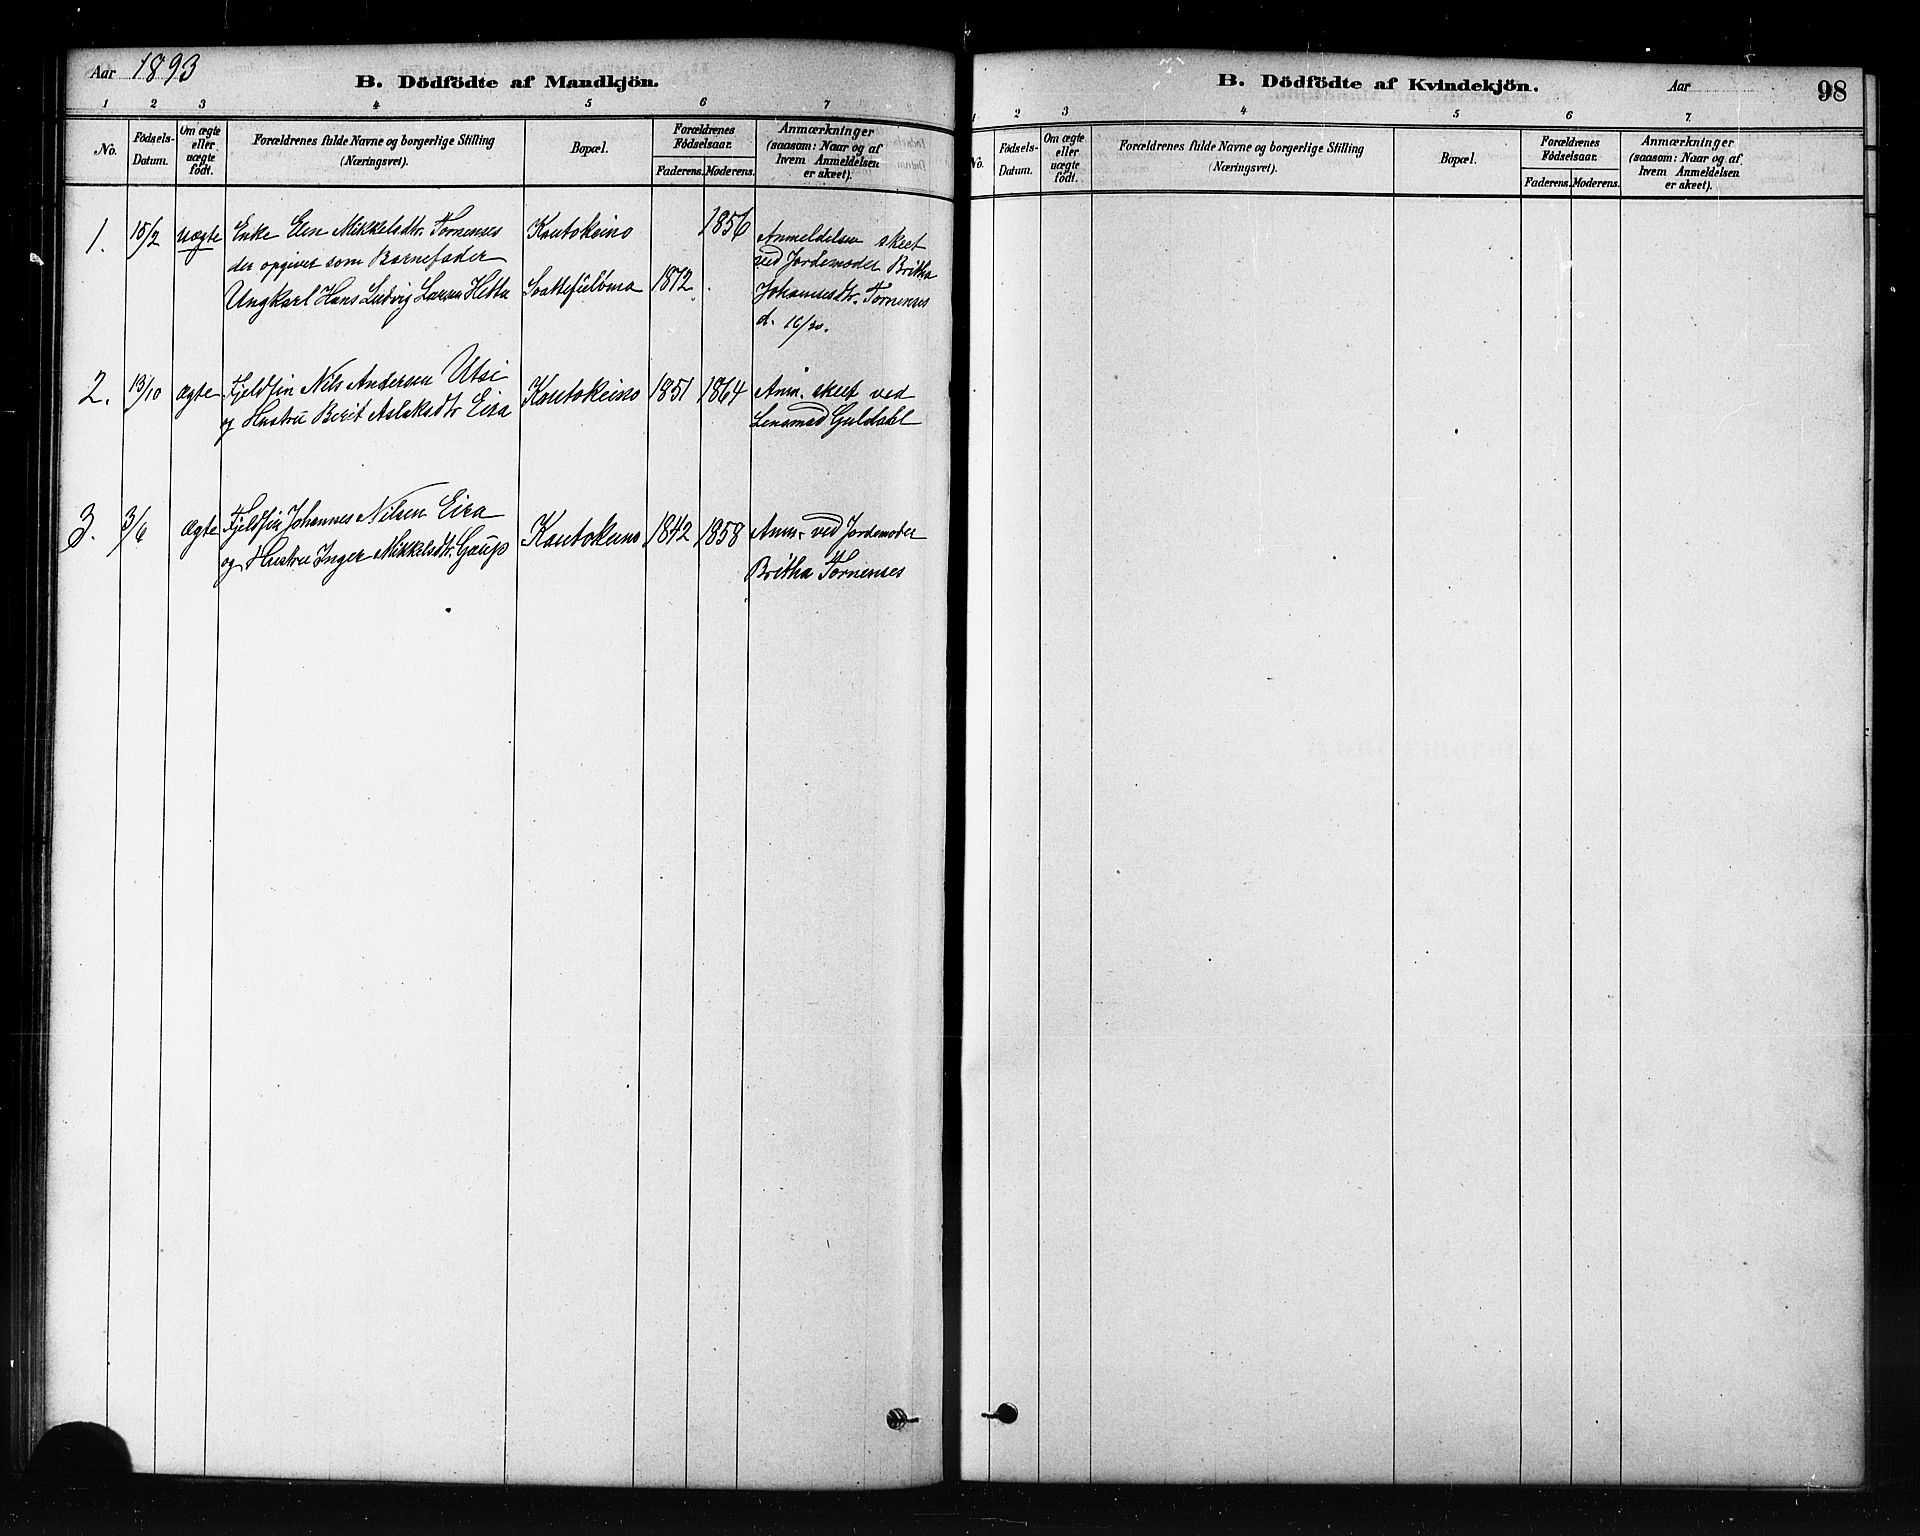 Aar 1893
B. Dödfödte af Mandkjön.
1 2 3 4 5 6 7
No.
Födsels-
Datum.
Om ægte
eller
uægte
födt.
Forældrenes fulde Navne og borgerlige Stilling
(Næringsvei).
Bopæl.
Forældrenes
Födselsaar.
Faderens. Moderens.
Anmærkninger
(saasom: Naar og af
hvem Anmeldelsen
er skeet).
1. 15/2 uægte Enke Elen Mikkelsdtr. Tornensis Kautokeino 1856 Anmeldelsen skeet
der opgiver som Barnefader ved Jordemoder Britha
Ungkarl Hans Ludvig Larsen Hætta 1872 Johannesdtr. Tornensis
d.
2. 13/10 ægte Fjeldfin Nils Andersen Utsi Kautokeino 1851 1864 Anm. skeet ved
og Hustru Berit Aslaksdtr Eira Lensmand Guldahl
3. 3/6 ægte Fjeldfin Johannes Nilsen Eira Kautokeino 1842 1858 Anm. ved Jordemoder
og Hustru Inger Mikkelsdtr. Gaup Britha Tornensis
B. Dödfödte af Kvindekjön.
Aar
98
1 2 3 4 5 6 7
No.
Födsels-
Datum.
Om ægte
eller
uægte
födt.
Forældrenes fulde Navne og borgerlige Stilling
(Næringsvei).
Bopæl.
Forældrenes
Födselsaar.
Faderens. Moderens.
Anmærkninger
(saasom: Naar og af
hvem Anmeldelsen
er skeet).